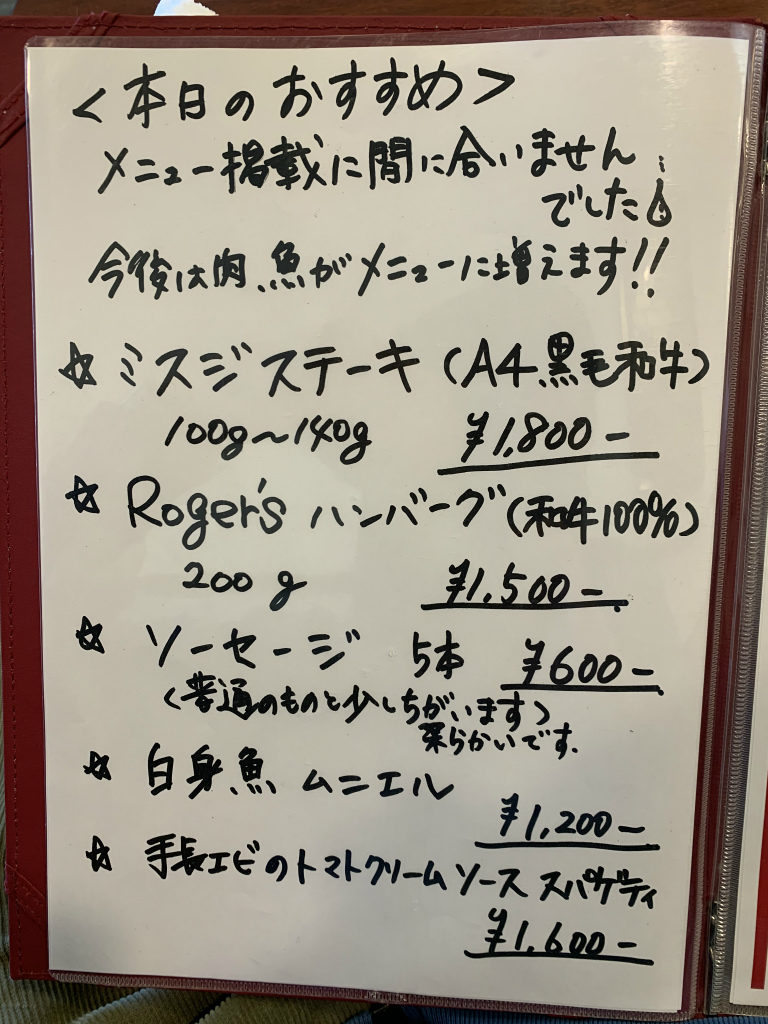 <本日のおすすめ>
メニュー掲載に間に合いません
でした
今後は肉、魚がメニューに増えます!!
☆ ミスジステーキ(A4、黒毛和牛)
100g〜140g ¥1,800−
☆ Roger's ハンバーグ(和牛100%)
200g ¥1,500−
☆ ソーセージ 5本 ¥600−
<普通のものと少しちがいます>
柔らかいです.
☆ 白身魚 ムニエル
¥1,200−
☆ 手長エビのトマトクリームソース スパゲティ
¥1,600−